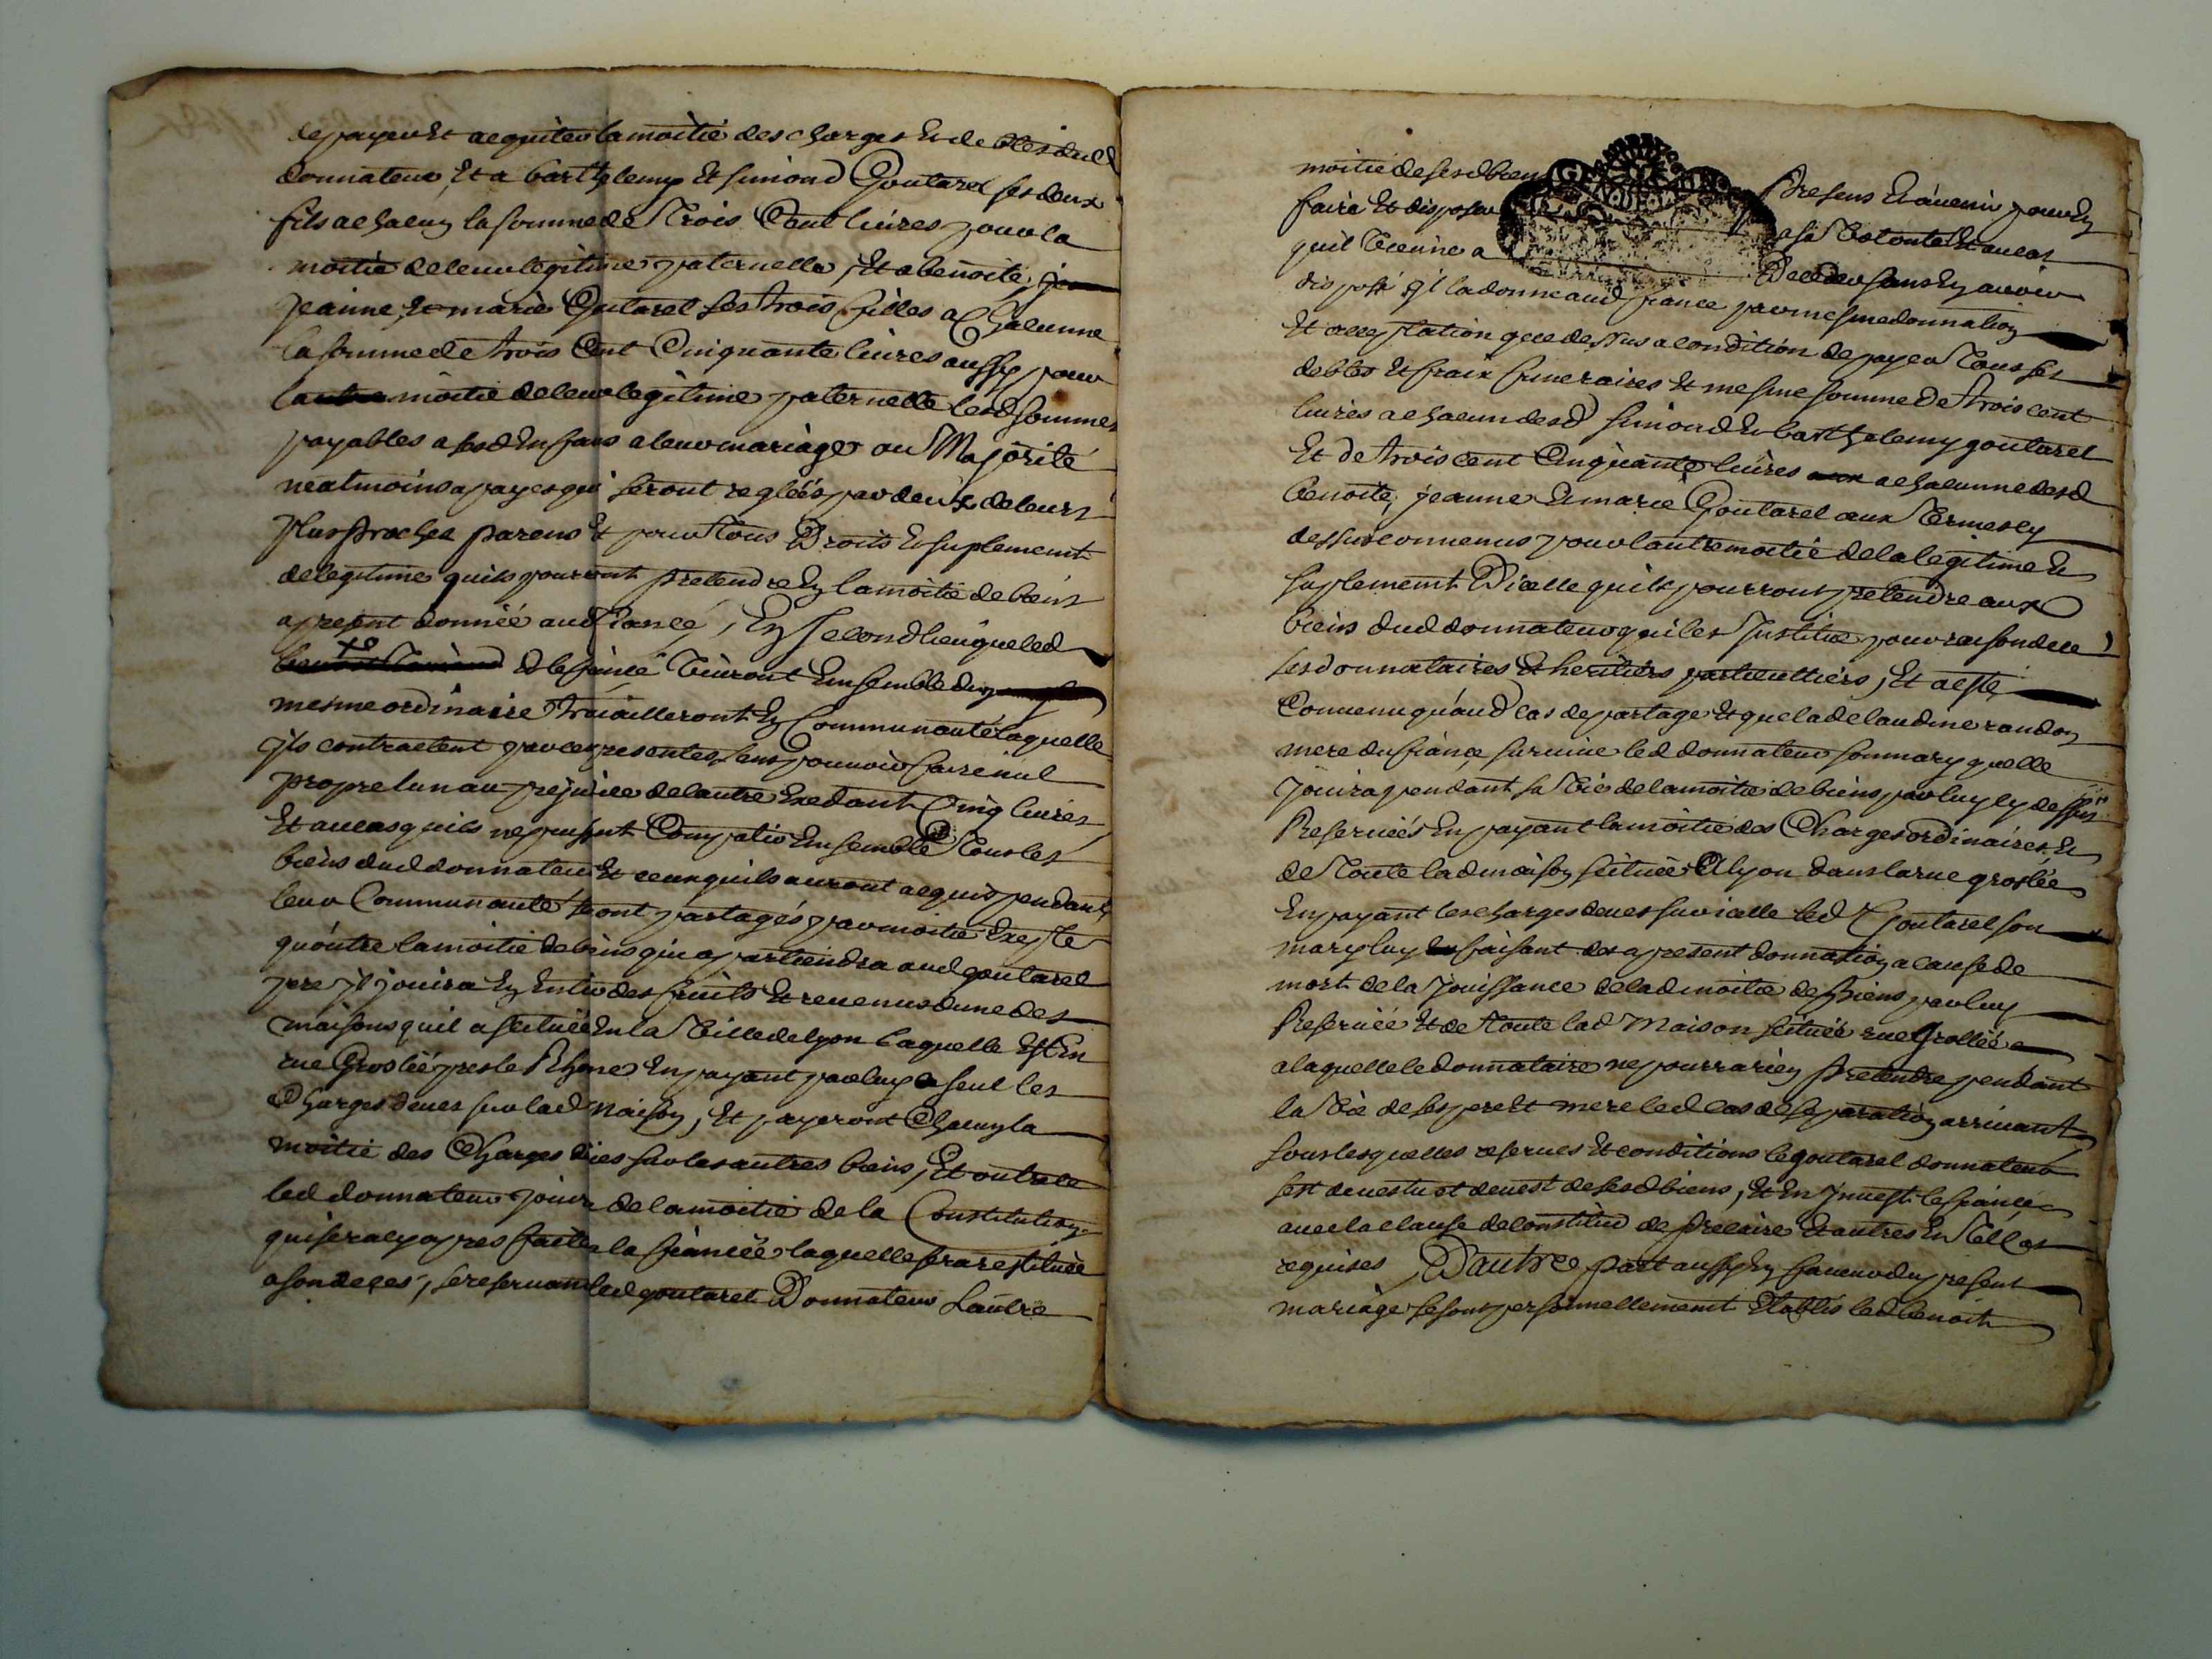 de payer et aequiter la moitié des charges et debtes dud
donnateur Et a barthelemy et simond Goutarel ses deux
fils a chacun la somme de Trois Cent liures pour la
moitié de leur legitime paternelle, Et a benoite,
jeanne, et marie Goutarel ses trois filles a Chacunne
la somme de trois Cent Cinquante liures aussy pour
moitié de leur legitime paternelle lesd sommes
payables a sesd Enfans a leur mariage ou Majorité
neatmoins a payes qui seront reglées par deux de leurs
plus proches parens Et pour tous Droits et suplement
de legitime quils pourront pretendre En la moitié de biens
a present donnée aud fiancé, En second lieu que led
et le fiancé viuront Ensemble dun
mesme ordinaire trauailleront En Communauté laquelle
jls contractent par ces presentes sans pouuoir faire nul
propre lun au prejudice de lautre Exedant Cinq liures
Et au cas quils ne puissent Compatir Ensemble Tous les
biens dud donnateur Et ceux quils auront acquis pendant
leur Communauté seront partagés par moitié Exepté
quoutre la moitié de biens qui apartiendra aud goutarel
pere jl jouira En Entier des fruits Et reuenus dune des
maisons quil a scituée En la Ville de lyon laquelle Est En
rue Groslée pres le Rhone En payant par luy seul les
Charges deues sur lad Maison, Et payeront Chacun la
moitié des Charges dües sur les autres biens, Et outre ce
led donnateur jouira de la moitié de la Constitution
qui sera cy apres faite a la fiancée laquelle sera restituée
a son deces, se reseruant led goutarel Donnateur Lautre
moitié de sesd biens Presens Et auenir pour En
faire Et disposer a sa Volonté Et au cas
quil Vienne a Deceder sans En auoir
disposé jl la donne aud fiancé par mesme donnation
Et acceptation que dessus a condition de payer Tous ses
debtes Et fraix funeraires Et mesme somme De trois cent
liures a chacun desd simond Et barthelemy goutarel
Et de trois cent Cinquante liures a chacunne desd
benoite, jeanne Et marie Goutarel aux Termes cy
dessus conuenus pour lautre moitié de la legitime Et
suplement Dicelle quils pourront pretendre aux
biens dud donnateur quil les Institue pour raison de ce
ses donnataires Et heritiers particulliers, Et a esté
Conuenu quaud cas de partage Et que lad claudine randon
mere du fiancé suruiue led donnateur son mary quelle
jouira pendant sa Vie de la moitié de biens par luy cy dessus
Reseruées En payant la moitié des Charges ordinaires Et
de Toute lad maison scituée A lyon dans la rue groslée
En payant les charges deues sur icelle led Goutarel son
mary luy faisant des a present donnation a cause de
mort de la Jouissance de lad moitié de biens par luy
Reseruée Et de Toute lad Maison scituée rue Grollée
a laquelle le donnataire ne pourra rien pretendre pendant
la Vie de ses pere Et mere led cas de separation arriuant
sous lesquelles reserues Et conditions le goutarel donnateur
sest deuestu et deuest de sesd biens, Et En Jnuest le fiancé
auec la clause de constitut de precaire Et autres En Tel cas
requises, D'autre part aussy En faueur du present
mariage se sont personnellement Etablis led benoit